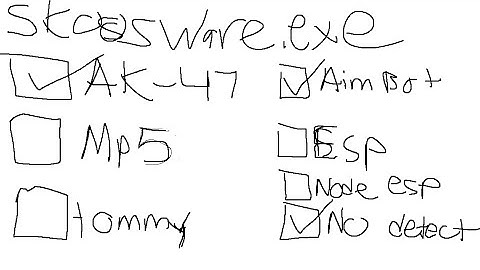 skcesware.exe
AK-47
Aim Bot
Mp5
Esp
Node esp
tommy
No detect